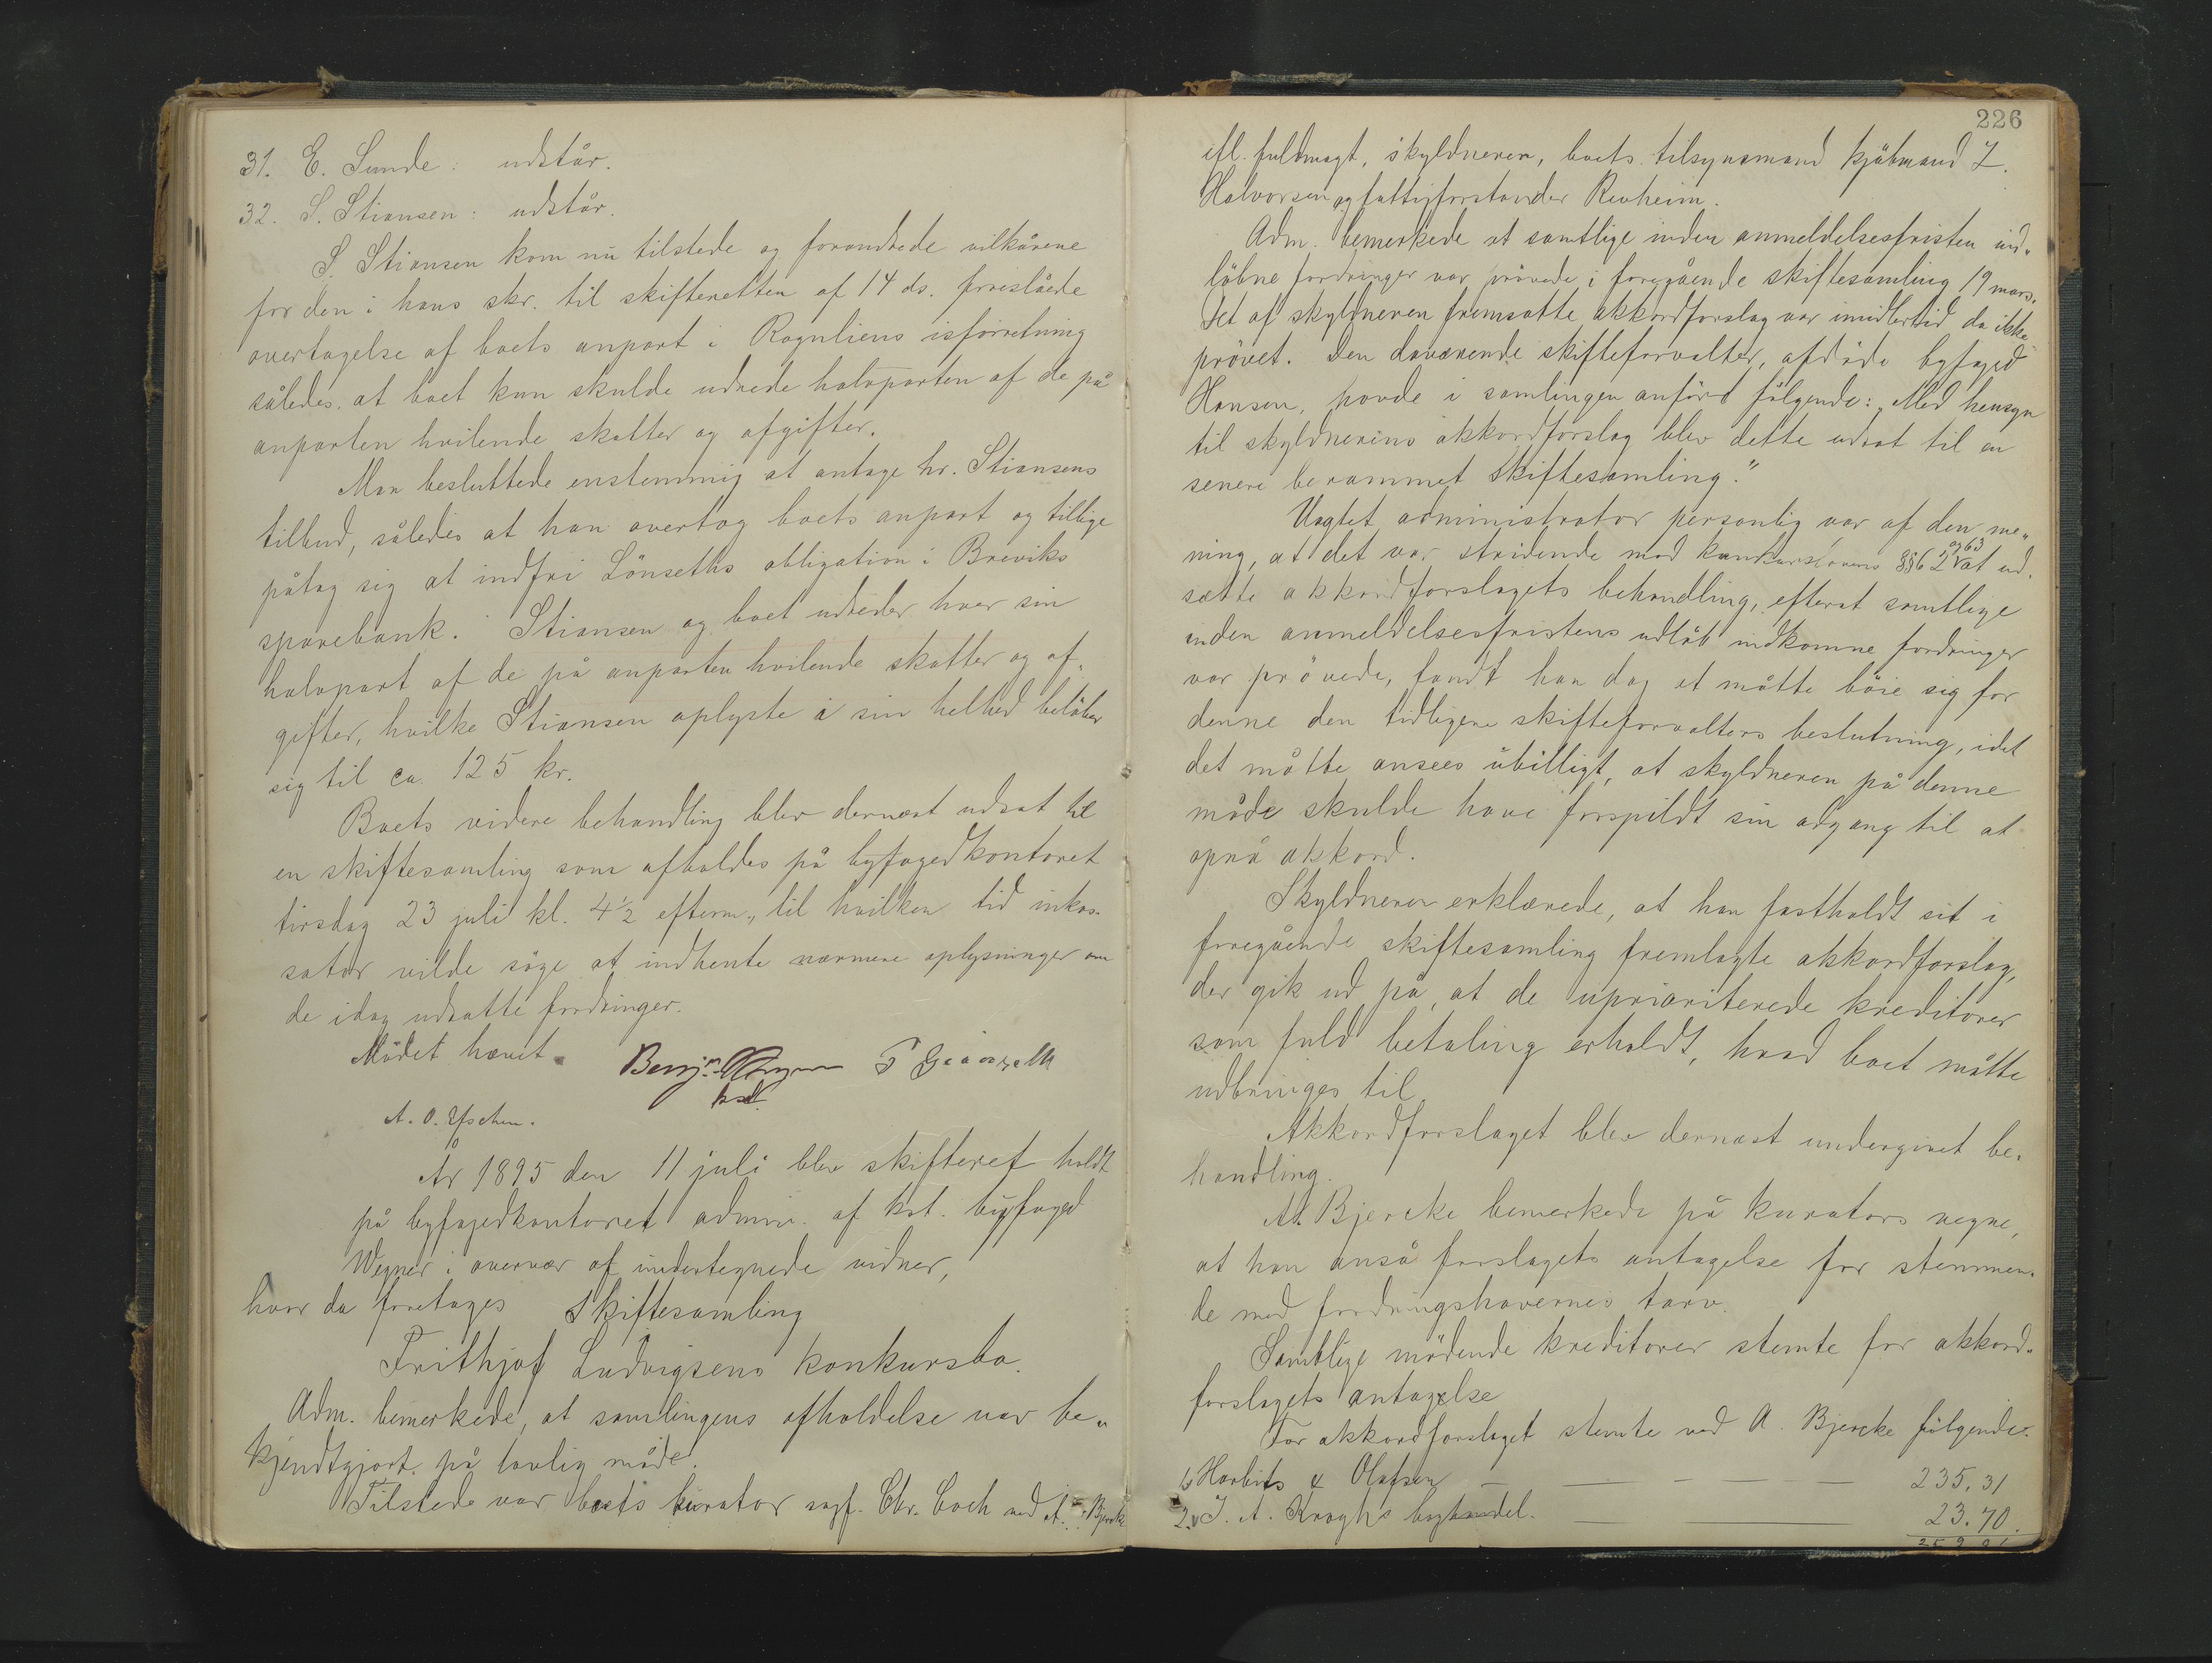 31. E. Sunde: udstår.
32. S. Stiansen: udstår.
S. Stiansen kom nu tilstede og forandrede vilkårene
for den i hans skr. til skifteretten af 14 ds. foreslåede
overtagelse af boets anpart i Rognliens isforretning
således, at boet kun skulde udrede halvparten af de på
anparten hvilende skatter og afgifter.
Man besluttede enstemmig at antage hr. Stiansens
tilbud, således at han overtog boets anpart og tillige
påtog sig at indfri Lönseths obligation i Breviks
sparebank. Stiansen og boet udreder hver sin
halvpart af de på anparten hvilende skatter og af-
gifter, hvilke Stiansen oplyste i sin helhed belöber
sig til ca. 125 kr.
Boets videre behandling blev dernæst udsat til
en skiftesamling som afholdes på byfogedkontoret
tirsdag 23 juli kl. 4½ efterm., til hvilken tid inkas-
sator vilde söge at indhente nærmere oplysninger om
de idag udsatte fordringer.
Mödet hævet.
Benj. Wegner
kst.
A. O.
År 1895 den 11 juli blev skifteret holdt
på byfogedkontoret admin. af kst. byfoged
Wegner i overvær af undertegnede vidner,
hvor da foretoges Skiftesamling
Frithjof Ludvigsens konkursbo.
Adm. bemerkede, at samlingens afholdelse var be-
kjendtgjort på lovlig måde.
Tilstede var boets kurator sagf. Chr. Coch ved A. Bjercke
226
ifl. fuldmagt, skyldneren, boets tilsynsmand kjöbmand I.
Halvorsen og fattigforstander Revheim.
Adm. bemerkede at samtlige inden anmeldelsesfristen ind-
löbne fordringer var prövede i foregående skiftesamling 19 mars.
Det af skyldneren fremsatte akkordforslag var imidlertid da ikke
prövet. Den daværende skifteforvalter, afdöde byfoged
Hansen, havde i samlingen anfört fölgende: „Med hensyn
til skyldnerens akkordforslag blev dette udsat til en
senere berammet skiftesamling."
Uagtet administrator personlig var af den me-
ning, at det var stridende mod konkurslovens §§ 62 og 63 at ud-
sætte akkordforslagets behandling, efterat samtlige
inden anmeldelsesfristens udlöb indkomne fordringer
var prövede, fandt han dog at måtte böie sig for
denne den tidligere skifteforvalters beslutning, idet
det måtte ansees ubilligt, at skyldneren på denne
måde skulde have forspildt sin adgang til at
opnå akkord.
Skyldneren erklærede, at han fastholdt sit i
foregående skiftesamling fremlagte akkordforslag,
der gik ud på, at de uprioriterede kreditorer
som fuld betaling erholdt, hvad boet måtte
udbringes til.
Akkordforslaget blev dernæst undergivet be-
handling.
A. Bjercke bemerkede på kurators vegne,
at han anså forslagets antagelse for stemmen-
de med fordringshavernes tarv.
Samtlige mödende kreditorer stemte for akkord-
forslagets antagelse
For akkordforslaget stemte ved A. Bjercke fölgende:
1. Harbitz & Olafsen 235,31
2. J. A. Kroghs boghandel. 23.70.
259 01